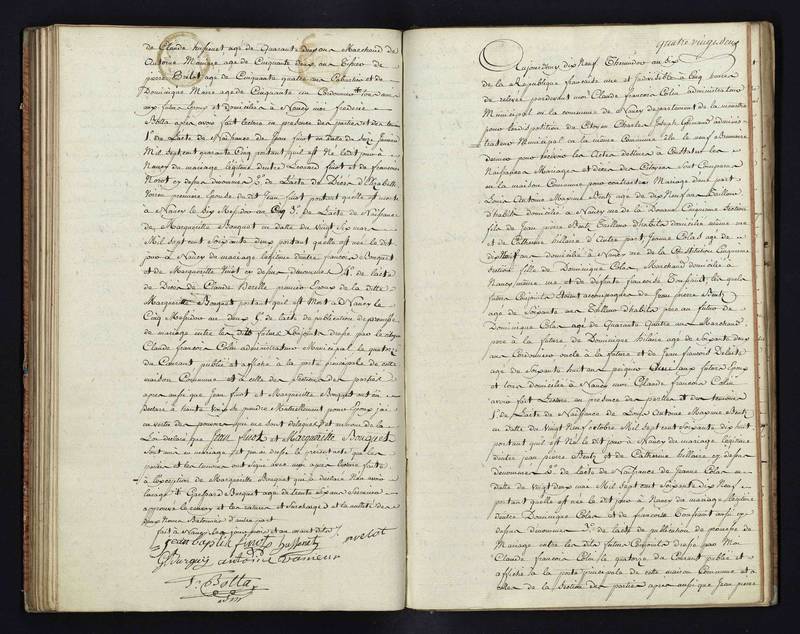 de Claude hussenet agé de Quarante deux ans Marchand de
antoine Mameur age de Cinquante deux ans Epicier de
pierre Brelet age de Cinquante quatre ans Cabaretier et de
Dominique Marc age de Cinquante ans Cordonnier
aux futurs Epoux et domicilié à Nancy moi frederic
Botta apres avoir fait lecture en presence des parties et des temoins
1° de Lacte de Naissance de Jean fivot en datte du Seize Janvier
Mil Sept cent quarante Cinq portant quil est Né ledit jour à
Nancy du mariage légitime dentre Leonard fivot et de francoise
Noirot ex dessus dénommés 2° de Lacte de Décès d'Elizabeth
premiere Epouse dudit Jean fivot portant quelle est morte
à Nancy le Six Messidor an Cinq 3° de Lacte de Naissance
de Marguerite Bouquet en datte du vingt Six mai
Mil Sept cent Soixante deux portant quelle est née le dit
jour à Nancy de mariage légitime dentre francois Bouquet
et de Marguerite ex dessus denommés 4° de lacte
de Décès de Claude Norelle premier Epoux de la ditte
Marguerite Bouquet portant quil est Mort à Nancy le
Cinq Messidor an deux 5° de lacte de publication de promesse
de mariage entre les dits futurs Conjoints dressé par le citoyen
Claude francois Colin administrateur Municipal le quatorze
du Courant publié et affiché à la porte principale de cette
maison Commune et à celle des Sections des parties
apres aussi que Jean fivot et Marguerite Bouquet ont eu
déclaré à haute voix se prendre Mutuellement pour Epoux jai
en vertu des pouvoirs qui me sont delegués et au nom de la
Loi declaré que Jean fivot et Marguerite Bouquet
Sont unis en mariage et jai dressé le présent acte que les
parties et les temoins ont signé avec moi apres lecture faite
à lexception de Marguerite Bouquet qui a declaré Non avoir
lusage
approuvé
fait à Nancy les jour mois et an avant dits
jean baptiste fivot hussenet
antoine Vameur
f. Botta
adm
quatre vingt deux
Aujourdhuy dix Neuf Thermidor an Six
de la Republique francaise une et indivisible à Cinq heures
de relevée pardevant moi Claude francois Colin administrateur
Municipal en la commune de Nancy departement de la meurthe
pour lindisposition du Citoyen Charles Joseph adminis
trateur Municipal en la même Commune élu le neuf Brumaire
dernier pour recevoir les Actes destinés à Constater les
Naissances Mariages et décès des Citoyens Sont Comparus
en la maison Commune pour contracter Mariage dune part
Louis Antoine Maxime Bentz agé de dix Neuf ans Tailleur
dhabits domicilié à Nancy rue de la Douane Cinquieme Section
fils de Jean pierre Bentz Tailleur dhabits domicilié même rue
et de Catherine hillaire d'autre part Jeanne Colas age de
dix huit ans domicilié à Nancy rue de la Constitution Cinquieme
Section fille de Dominique Colas Marchand domicilié à
Nancy même rue et de defunte francoise Toussaint les quels
futurs Conjoints étoient accompagnés de Jean pierre Bentz
age de Soixante ans Tailleur dhabits pere au futur de
Dominique Colas agé de Quarante Quatre ans Marchand
pere à la future de Dominique hilaire age de Soixante deux
ans Cordonnier oncle à la future et de Jean francois Delisle
age de Soixante huit ans aux futurs Epoux
et tous domicilié à Nancy moi Claude francois Colin
avoir fait Lecture en presence des parties et des temoins
1° de Lacte de Naissance de Louis Antoine Maxime Bentz
en datte du vingt Neuf octobre Mil Sept cent Soixante dix huit
portant quil est Né le dit jour à Nancy du mariage légitime
dentre Jean pierre Bentz et de Catherine hillaire ex dessus
dénommés 2° de Lacte de Naissance de Jeanne Colas en
datte de vingt deux mai Mil Sept cent Soixante dix Neuf
portant quelle est née le dit jour à Nancy du mariage légitime
dentre Dominique Colas et de francoise Toussaint aussi ex
dessus dénommés 3° de lacte de publication de promesse de
Mariage entre les dits futurs Conjoints dressé par Moi
Claude francois Colin le quatorze du Courant publié et
affiché à la porte principale de cette maison Commune et à
celles de la Section des parties apres aussi que Jean pierre